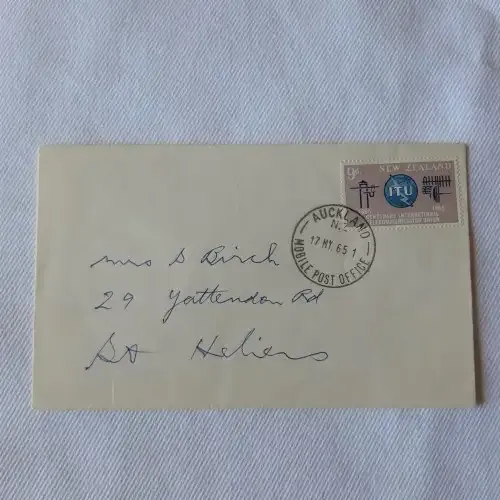 9d NEW ZEALAND
ITU
1865 1965
CENTENARY INTERNATIONAL
TELECOMMUNICATION UNION
AUCKLAND
N.Z.
17 MY. 65 1
MOBILE POST OFFICE
Mrs S Birch
29 Yattendon Rd
St Heliers